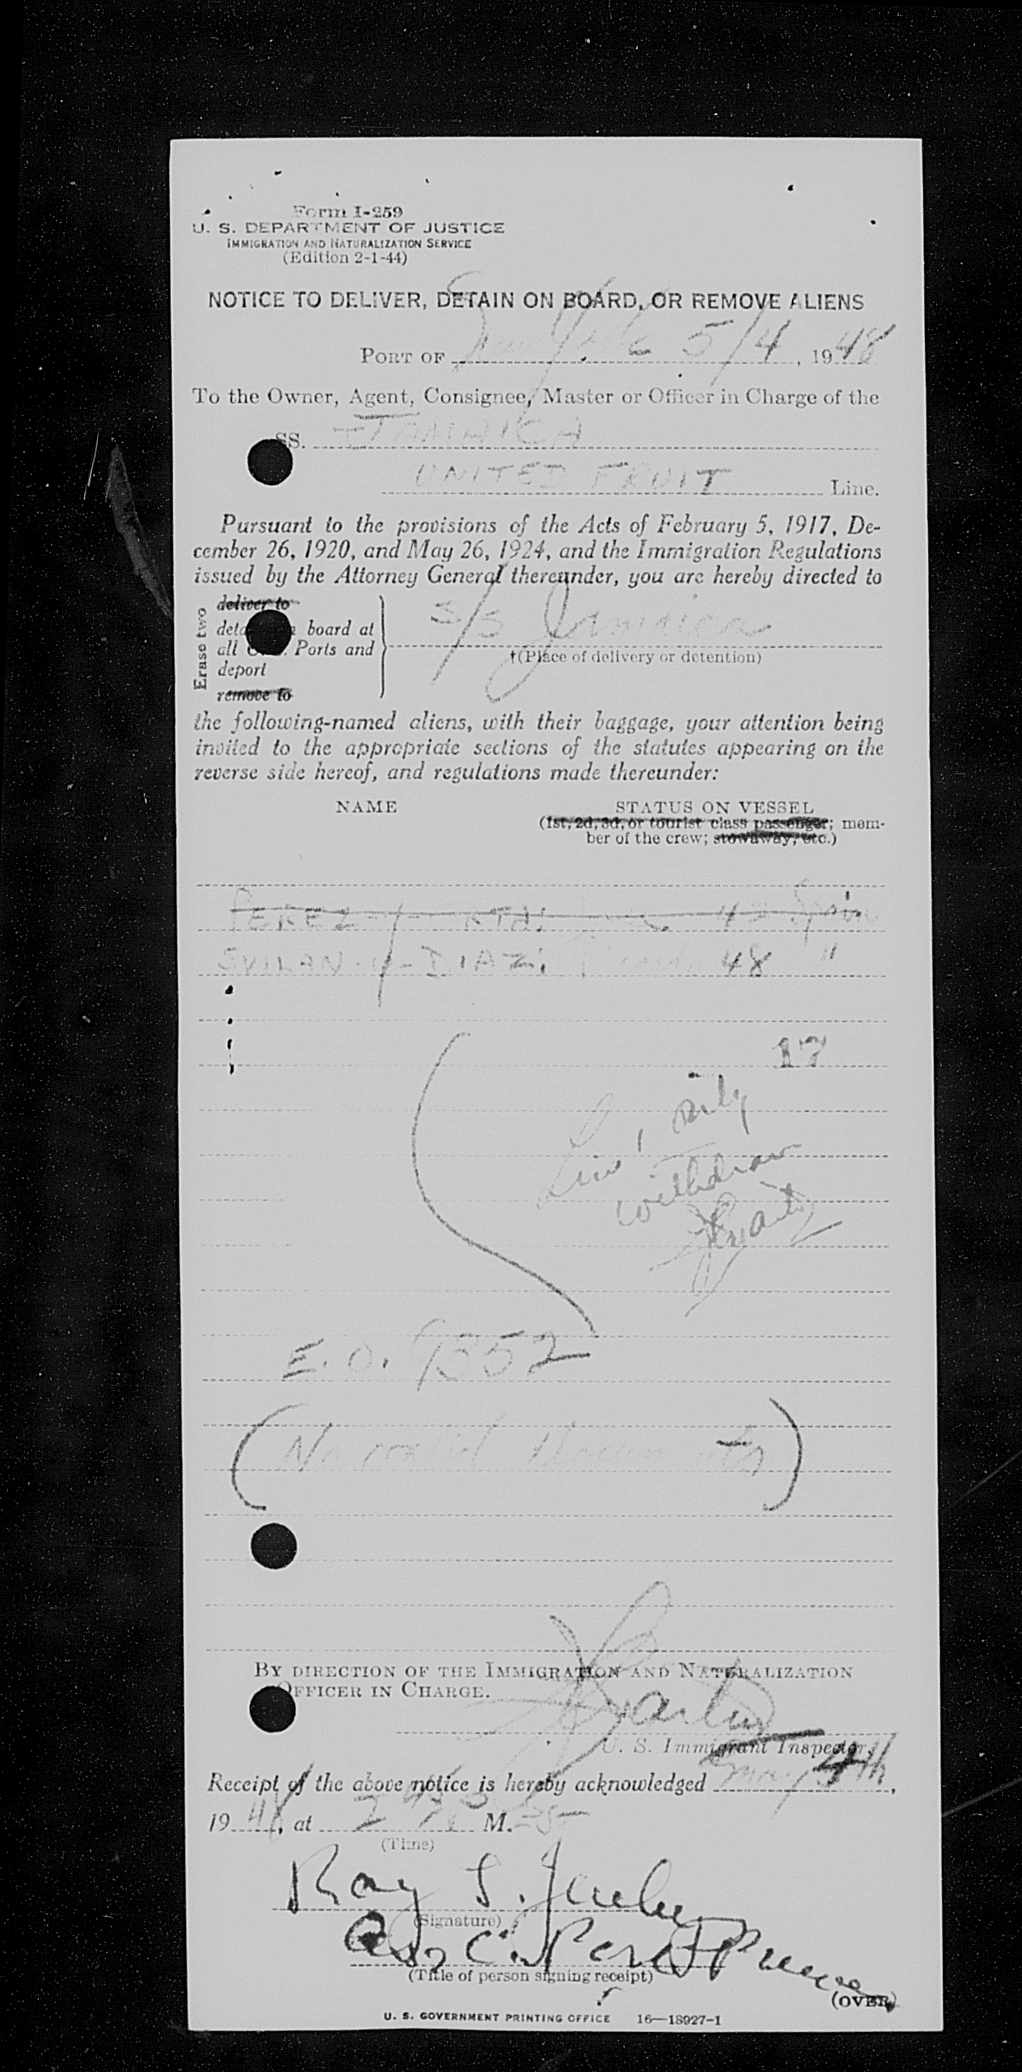 Form I-259
U. S. DEPARTMENT OF JUSTICE
IMMIGRATION AND NATURALIZATION SERVICE
(Edition 2-1-44)
NOTICE TO DELIVER, DETAIN ON BOARD, OR REMOVE ALIENS
PORT OF New York 5/4, 1948
To the Owner, Agent, Consignee, Master or Officer in Charge of the
SS. JAMAICA
UNITED FRUIT Line.
Pursuant to the provisions of the Acts of February 5, 1917, De-
cember 26, 1920, and May 26, 1924, and the Immigration Regulations
issued by the Attorney General thereunder, you are hereby directed to
Erase two
deliver to
board at
all Ports and
deport
remove to
S/S Jamaica
†(Place of delivery or detention)
the following-named aliens, with their baggage, your attention being
invited to the appropriate sections of the statutes appearing on the
reverse side hereof, and regulations made thereunder:
NAME STATUS ON VESSEL
(1st, 2d, 3d, or tourist class passenger; mem-
ber of the crew; stowaway, etc.)
PEREZ-y- 42 Spain
SVILAN-y-DIAZ; 48 "
17
only
withdrawn
E.O. 9352
(No valid Documents)
BY DIRECTION OF THE IMMIGRATION AND NATURALIZATION
OFFICER IN CHARGE.
U. S. Immigrant Inspector.
Receipt of the above notice is hereby acknowledged May 4th,
1948, at M.
(Time)
Ray S.
(Signature)
(Title of person signing receipt)
(OVER)
U. S. GOVERNMENT PRINTING OFFICE 16—18927-1